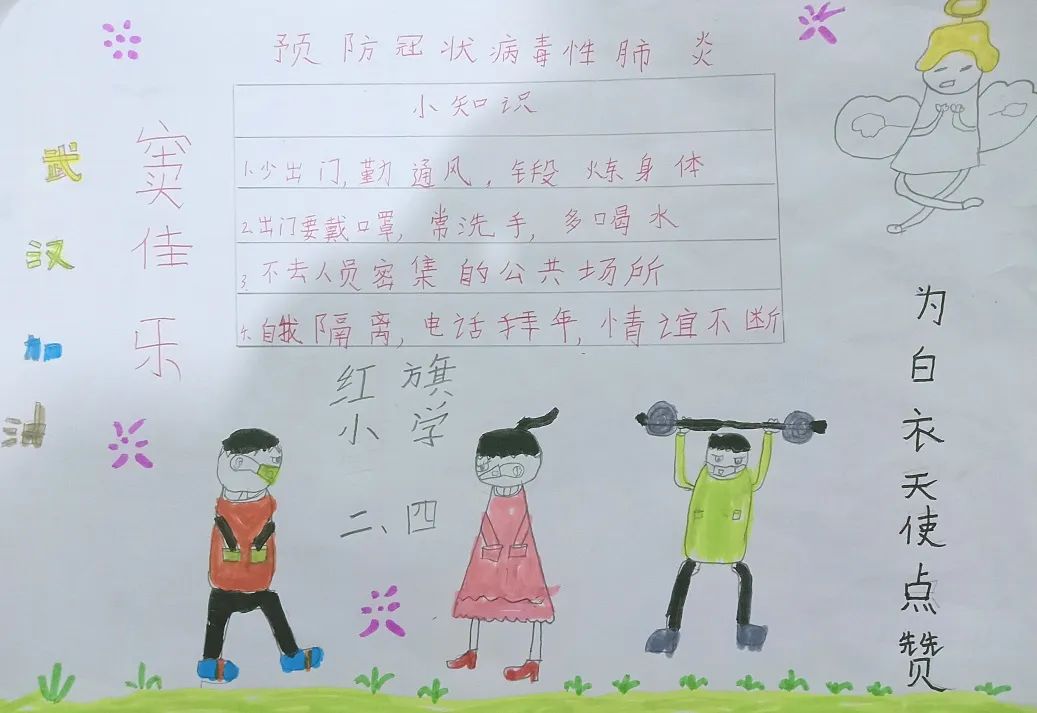 预防冠状病毒性肺炎
小知识
1.少出门,勤通风,锻炼身体
2.出门要戴口罩,常洗手,多喝水
3.不去人员密集的公共场所
自我隔离,电话拜年,情谊不断
武汉加油
窦佳乐
红旗
小学
二、四
为白衣天使点赞